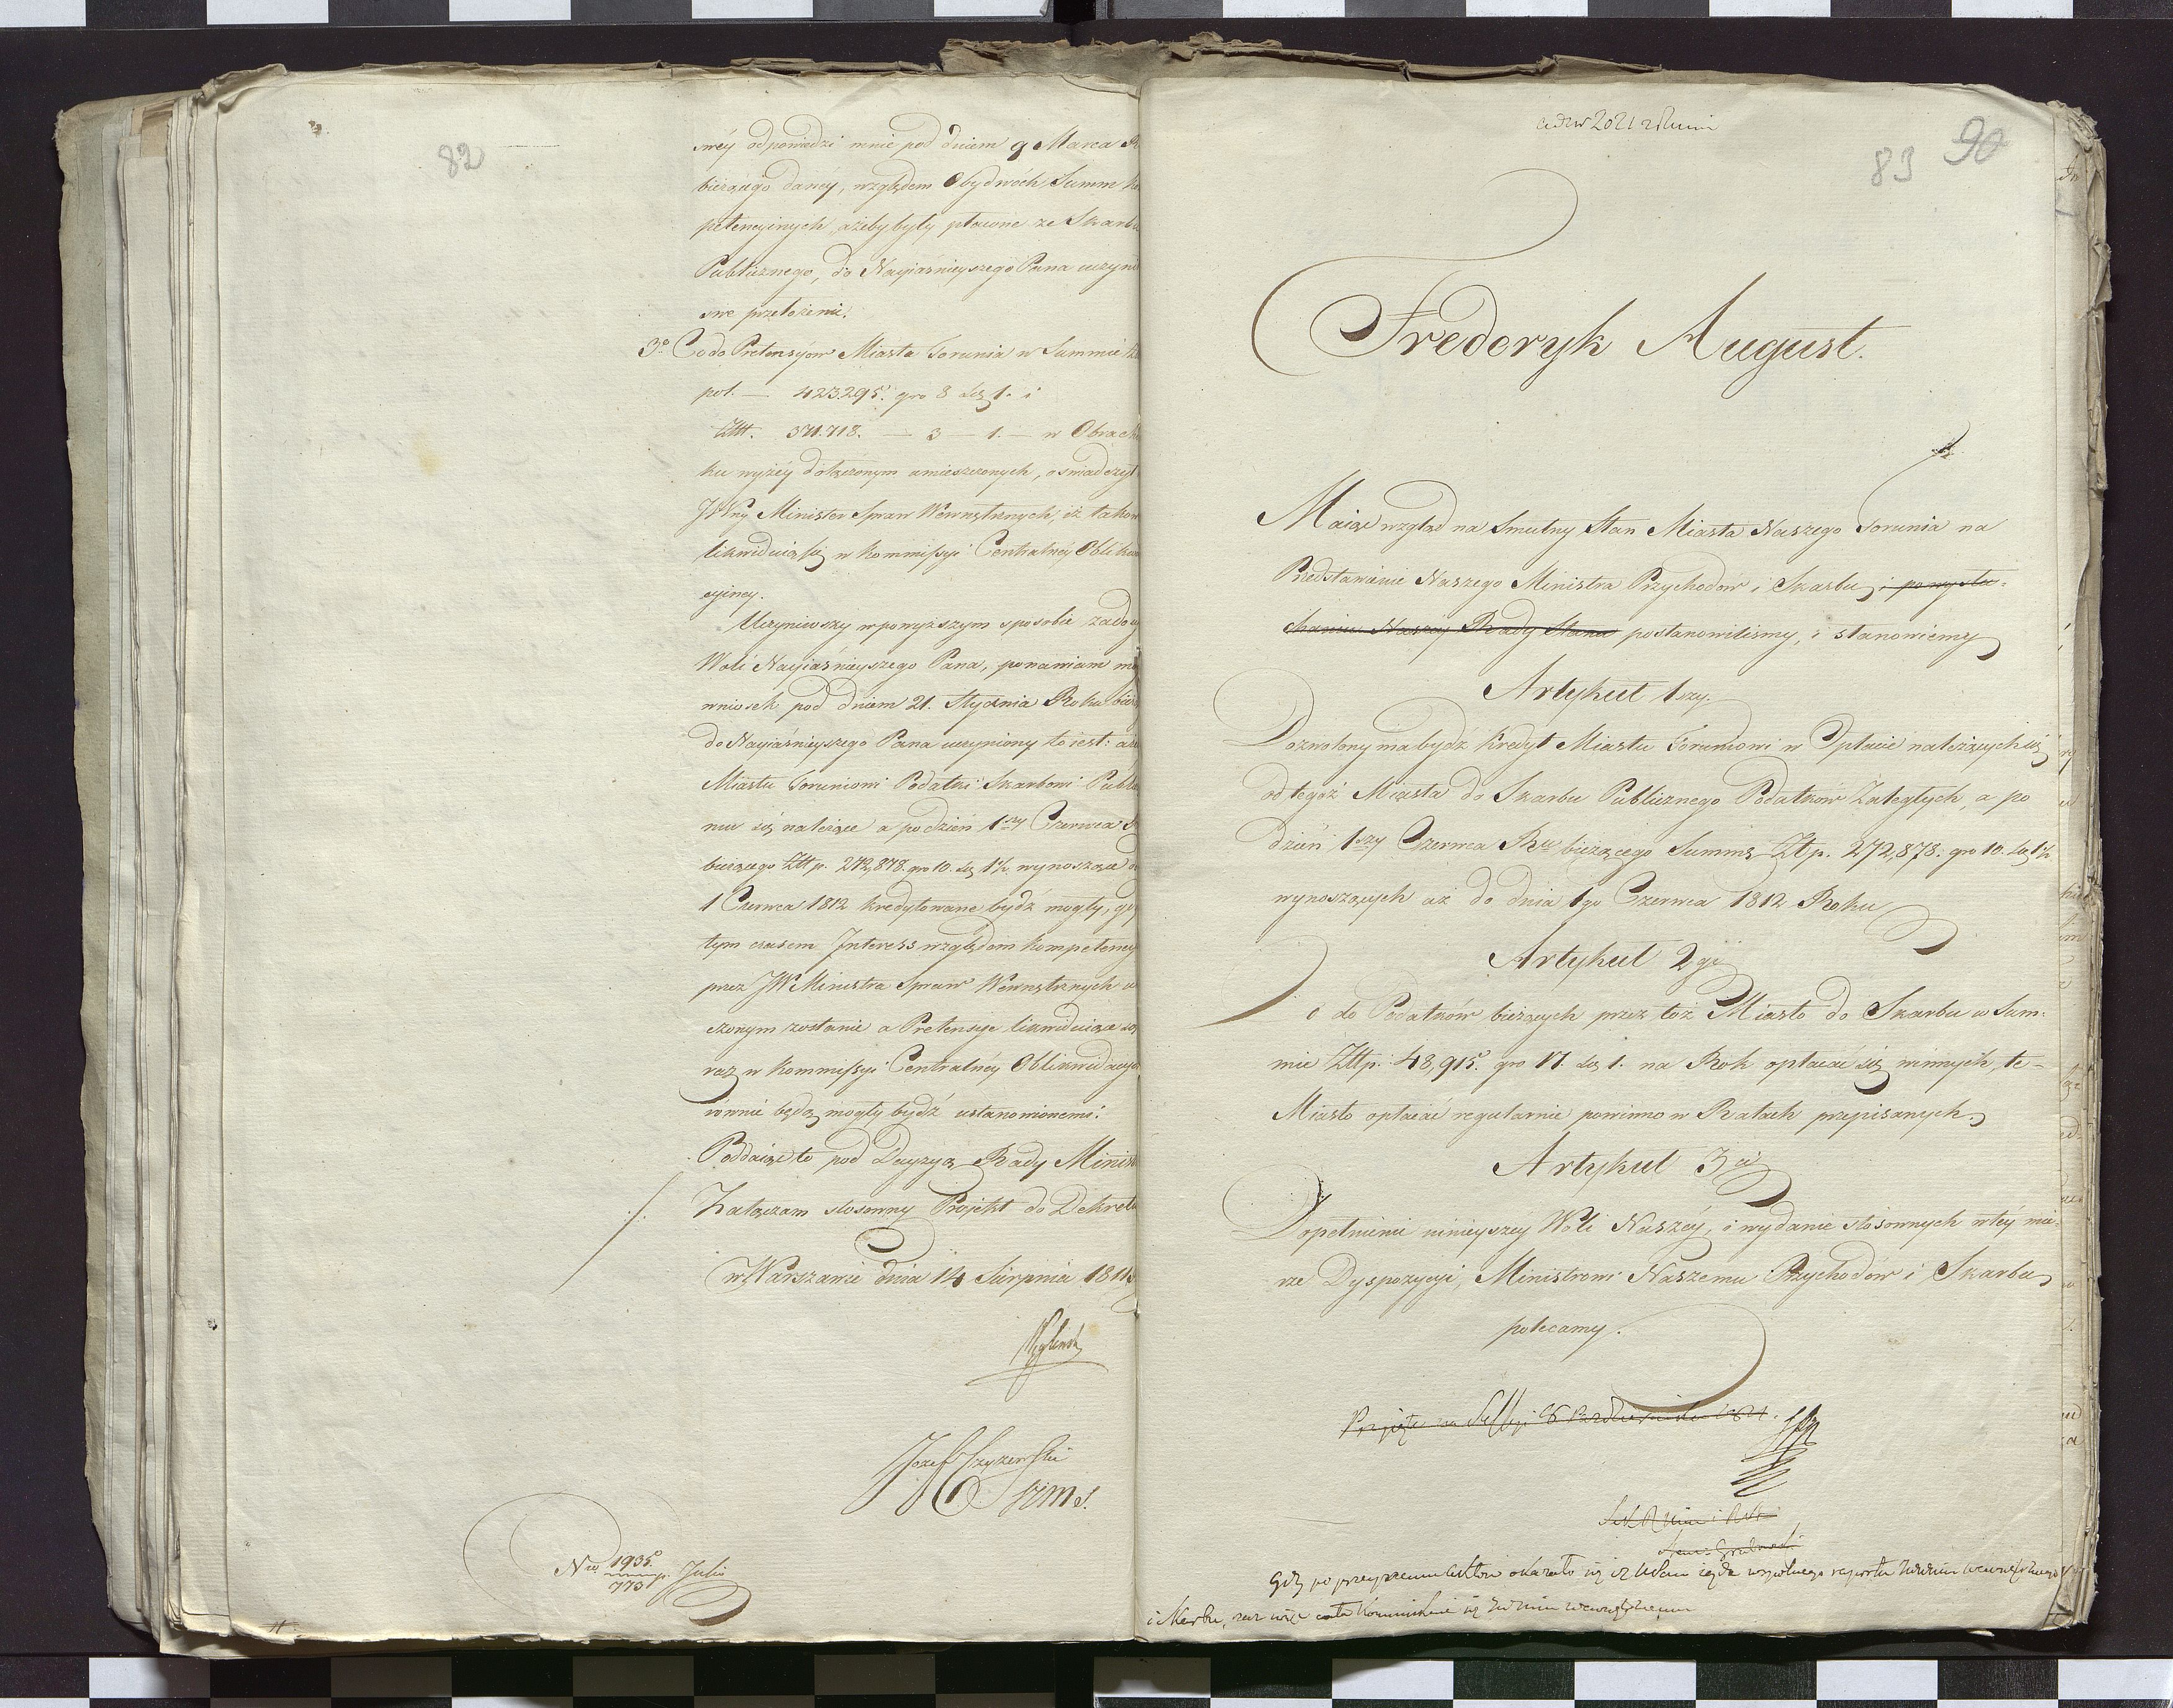 82
swéy odpowiedzi mnie pod dniem 9 Marca R
bieżącego daney, względem Obydwóch Summ Ko
petencyinych, ażeby były płacone ze Skarbu
Publicznego, do Nayiaśnieyszego Pana uczyni
swe przełożenie.
3º Co do Pretensyów Miasta Torunia w Summie Zł
pol. — 423.295. gro 8 sz 1. i
Złtt. 371.718. — 3 — 1. — w Obrach
ku wyżéy dołączonym umieszczonych, oświadczył
JWny Minister Spraw Wewnętrznych, iż takow
likwiduią się w Kommissyi Centralnéy Oblikw
cyiney.
Uczyniwszy w powyższym sposobie zadosy
Woli Nayiaśnieyszego Pana, ponawiam mó
wniosek pod dniem 21. Stycznia Roku bież
do Nayiaśnieyszego Pana uczyniony to iest: aże
Miastu Toruniowi Podatki Skarbowi Publi
mu się należące a po dzień 1szy Czerwca R
bieżącego Złtp. 272,878. gro 10. sz 1½ wynoszące do
1 Czerwca 1812 kredytowane bydź mogły, gdy
tym czasem Interess względem kompetency
przez JW Ministra Spraw Wewnętrznych u
czonym zostanie a Pretensye likwiduiące się
raz w Kommissyi Centralnéy Oblikwidacyi
równie będą mogły bydź ustanowionemi.
Poddaiąc to pod Decyzyą Rady Minist
Załączam stosowny Projekt do Dekretu
w Warszawie dnia 14 Sierpnia 1811
Węgleński
Józef Czyżewski
Nro 1935/773 p. Julio
83 90
Frederyk August.
Maiąc wzgląd na Smutny Stan Miasta Naszego Torunia na
Przedstawienie Naszego Ministra Przychodów i Skarbu, i po wysłu-
chaniu Naszéy Rady Stanu postanowiliśmy, i stanowiemy
Artykuł 1szy.
Dozwolony ma bydź Kredyt Miastu Toruniowi w Opłacie należących się
od tegoż Miasta do Skarbu Publicznego Podatków Zaległych, a po
dzień 1szy Czerwca Rku bieżącego Summę Złp. 272,878. gro 10. sz 1½
wynoszących aż do dnia 1go Czerwca 1812 Roku
Artykuł 2gi
Co do Podatków bieżących przez toż Miasto do Skarbu w Sum-
mie Złtp. 48,915. gro 17. sz 1. na Rok opłacać się winnych, te-
Miasto opłacać regularnie powinno w Ratach przepisanych.
Artykuł 3ci
Dopełnienie ninieyszey Woli Naszéy, i wydanie stosownych w téy mie-
rze Dyspozycyi, Ministrowi Naszemu Przychodów i Skarbu
polecamy.
Przyjęte na Sessyi 26 Października 1811.
Gdy po przeyrzeniu Aktów okazało się iż Udano żąda wspólnego raportu Ministra wewnętrznego
i Skarbu, zaś więc